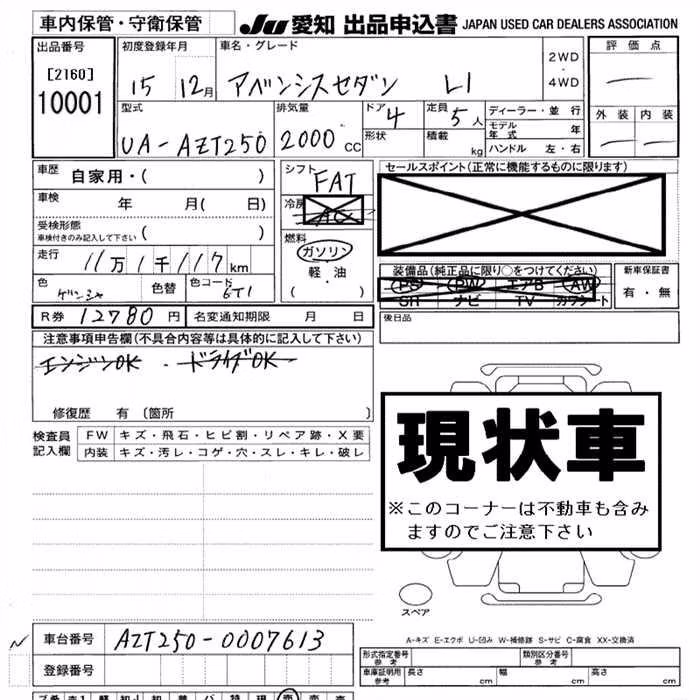 車内保管・守衛保管 JU 愛知 出品申込書 JAPAN USED CAR DEALERS ASSOCIATION
出品番号 初度登録年月 車名・グレード 評価点
[2160] 10001 15 12月 アベンシスセダン LI 2WD・4WD
型式 排気量 ドア 定員 ディーラー・並行 外装 内装
UA-AZT250 2000cc 4 5人 モデル年式 年
形状 積載 kg ハンドル 左・右
車歴 自家用・( ) シフト FAT セールスポイント(正常に機能するものに限ります)
車検 年 月( 日) 冷房 AC
受検形態 車検付きのみ記入して下さい ( ) 燃料 ガソリン
走行 11万1千117km 軽・油 装備品(純正品に限り○をつけてください) 新車保証書
・( ) PS PW エアB AW 有・無
色 色替 色コード 6T1 SR ナビ TV カワシート
R券 12780円 名変通知期限 月 日 後日品
注意事項申告欄(不具合内容等は具体的に記入して下さい)
エンジンOK・ドライブOK
修復歴 有 〔箇所 〕
検査員記入欄 FW キズ・飛石・ヒビ割・リペア跡・X要
内装 キズ・汚レ・コゲ・穴・スレ・キレ・破レ
現状車
※このコーナーは不動車も含み
ますのでご注意下さい
スペア
A-キズ E-エクボ U-凹み W-補修跡 S-サビ C-腐食 XX-交換済
車台番号 AZT250-0007613
登録番号
形式指定番号 参考 類別区分番号 参考
車庫証明用 参考 長さ cm 幅 cm 高さ cm